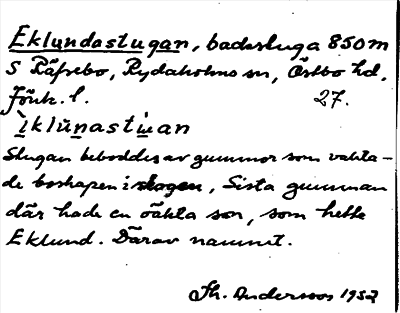 Eklundastugan, backstuga 850 m
S Räfsebo, Rydaholms sn, Östbo hd,
Jönk. l. 27.
ìklùnastu̇an
Stugan beboddes av gummor som vakta-
de boskapen i skogen, Sista gumman
där hade en oäkta son, som hette
Eklund. Därav namnet.
Th. Andersson 1952